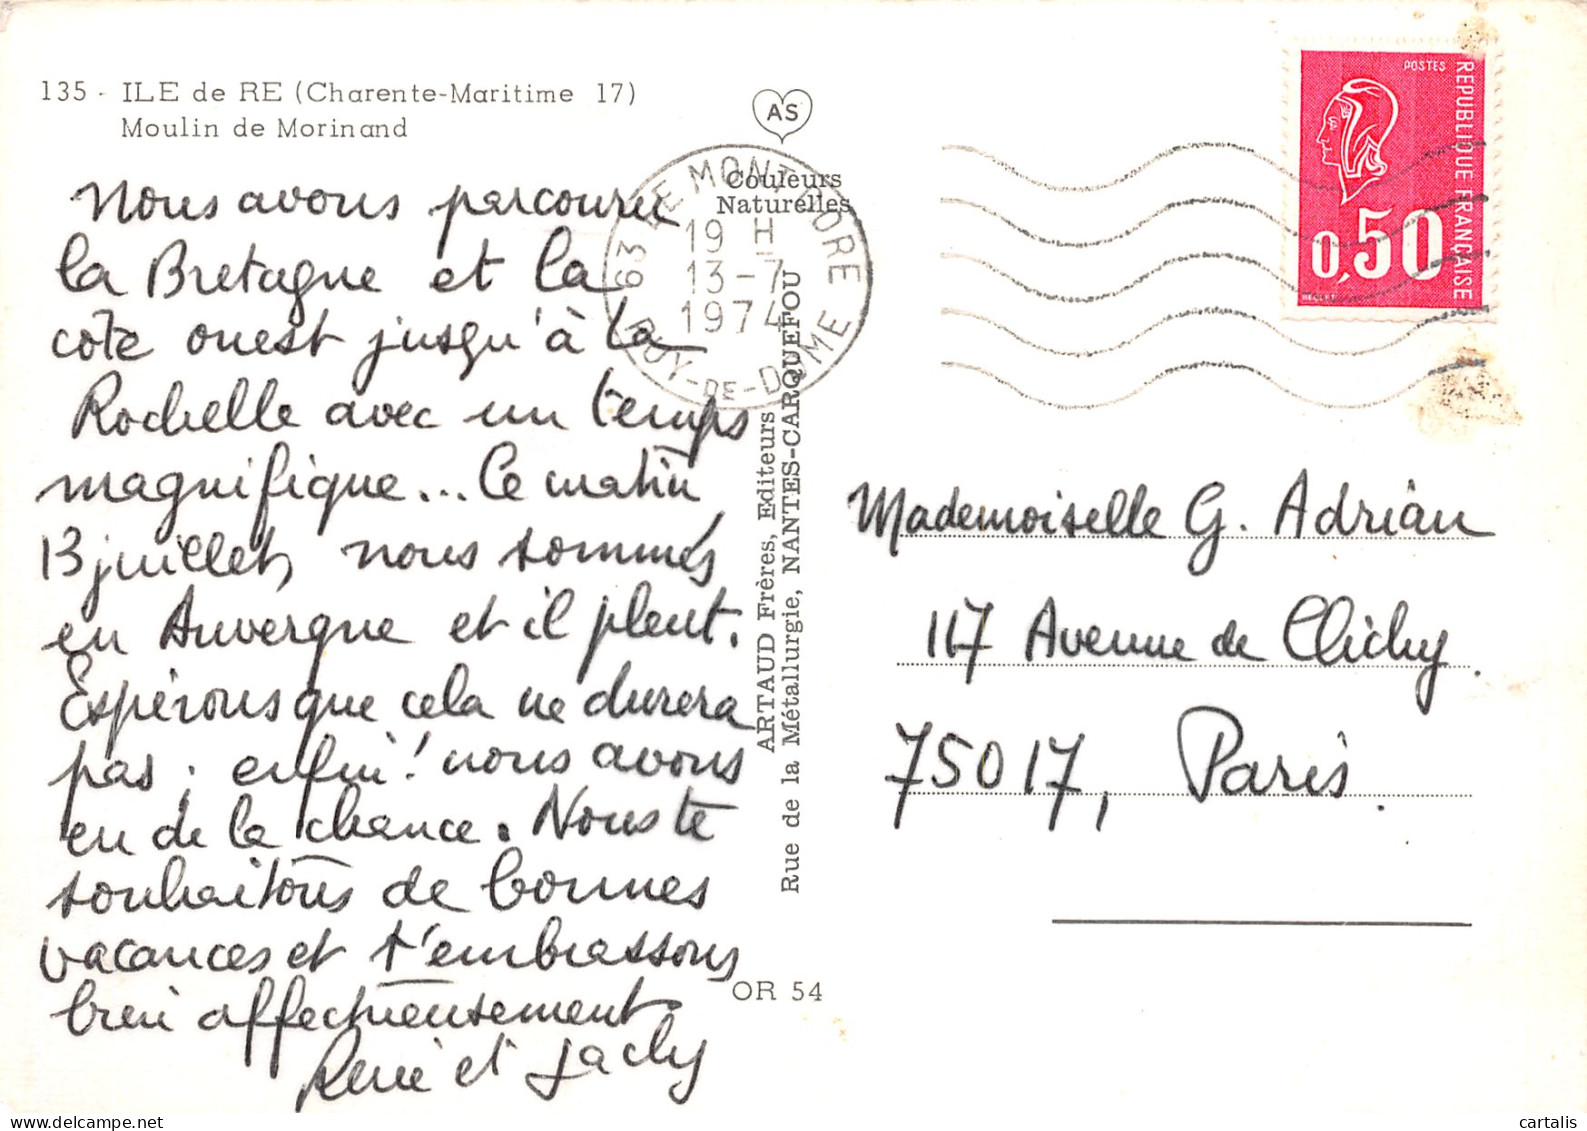 135 - ILE de RE (Charente-Maritime 17)
Moulin de Morinand
AS
Couleurs
Naturelles
63 LE MONT-DORE
19 H
13-7
1974
PUY-DE-DOME
POSTES
REPUBLIQUE FRANÇAISE
0,50
Nous avons parcouru
la Bretagne et la
côte ouest jusqu'à la
Rochelle avec un temps
magnifique... Ce matin
13 juillet, nous sommes
en Auvergne et il pleut.
Espérons que cela ne durera
pas ; enfin ! nous avons
eu de la chance. Nous te
souhaitons de bonnes
vacances et t'embrassons
bien affectueusement.
René et Jacky
ARTAUD Frères, Editeurs
Rue de la Métallurgie, NANTES-CARQUEFOU
Mademoiselle G. Adrian
117 Avenue de Clichy.
75017, Paris.
OR 54
cartalis